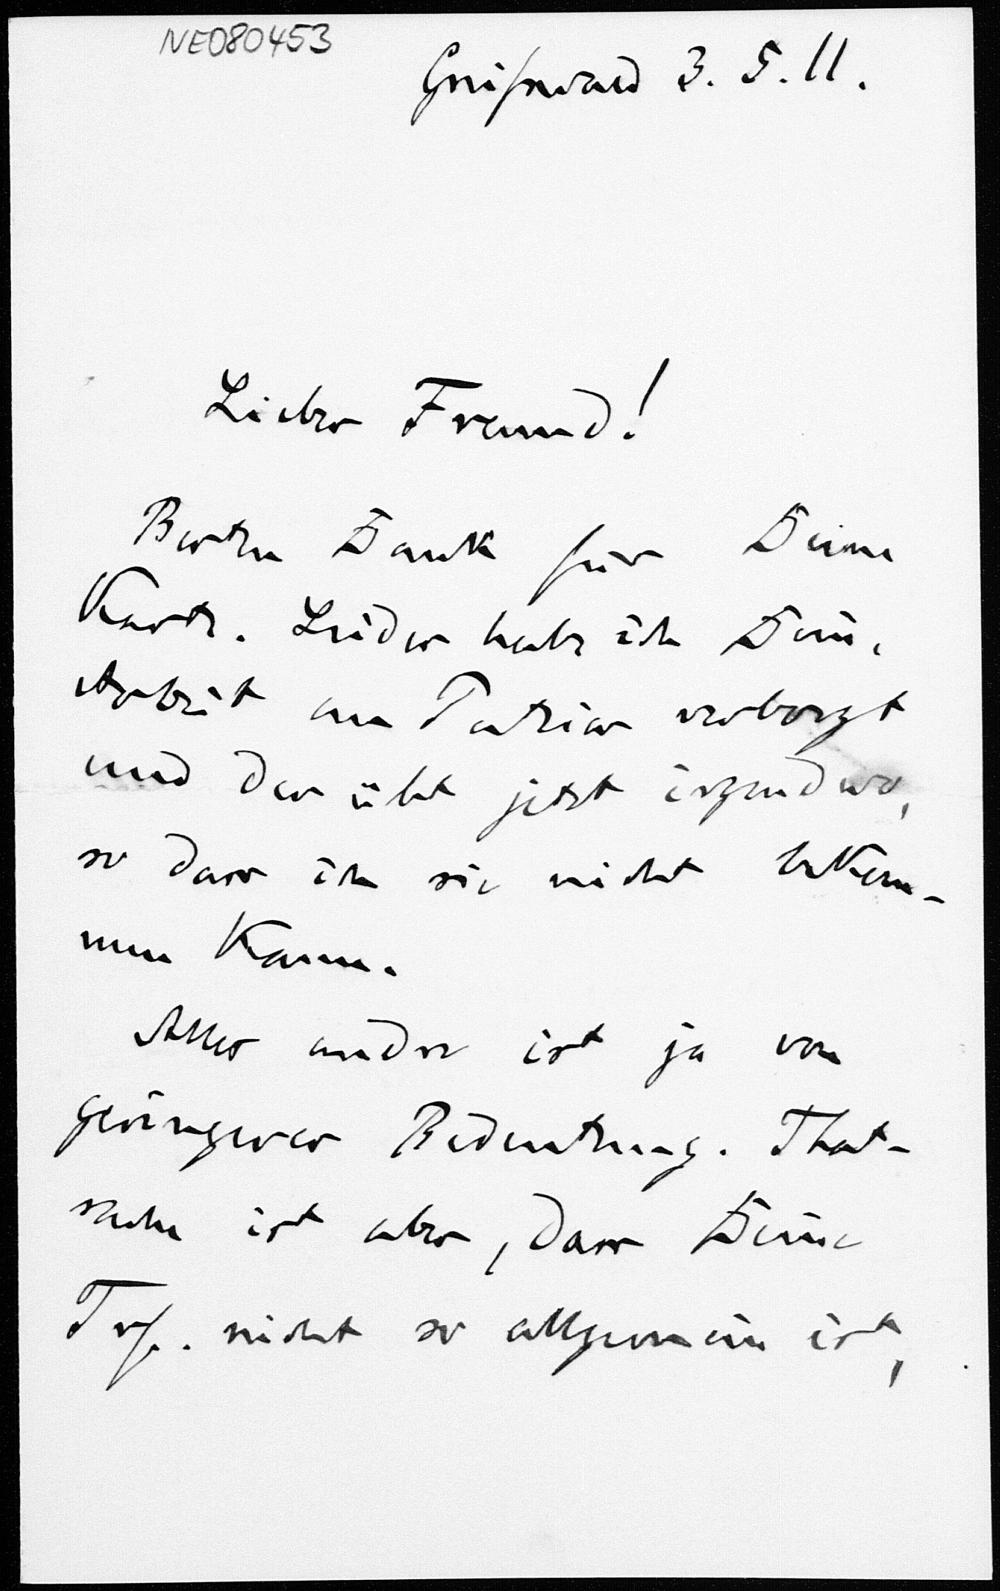 NE080453
Greifswald 3. 5. 11.
Lieber Freund!
Besten Dank für Deine
Karte. Leider habe ich Deine
Arbeit an Patzier verborgt
und der übt jetzt irgendwo,
so dass ich sie nicht bekom-
men kann.
Alles andre ist ja von
geringerer Bedeutung. That-
sache ist aber, dass Deine
Trf. nicht so allgemein ist,